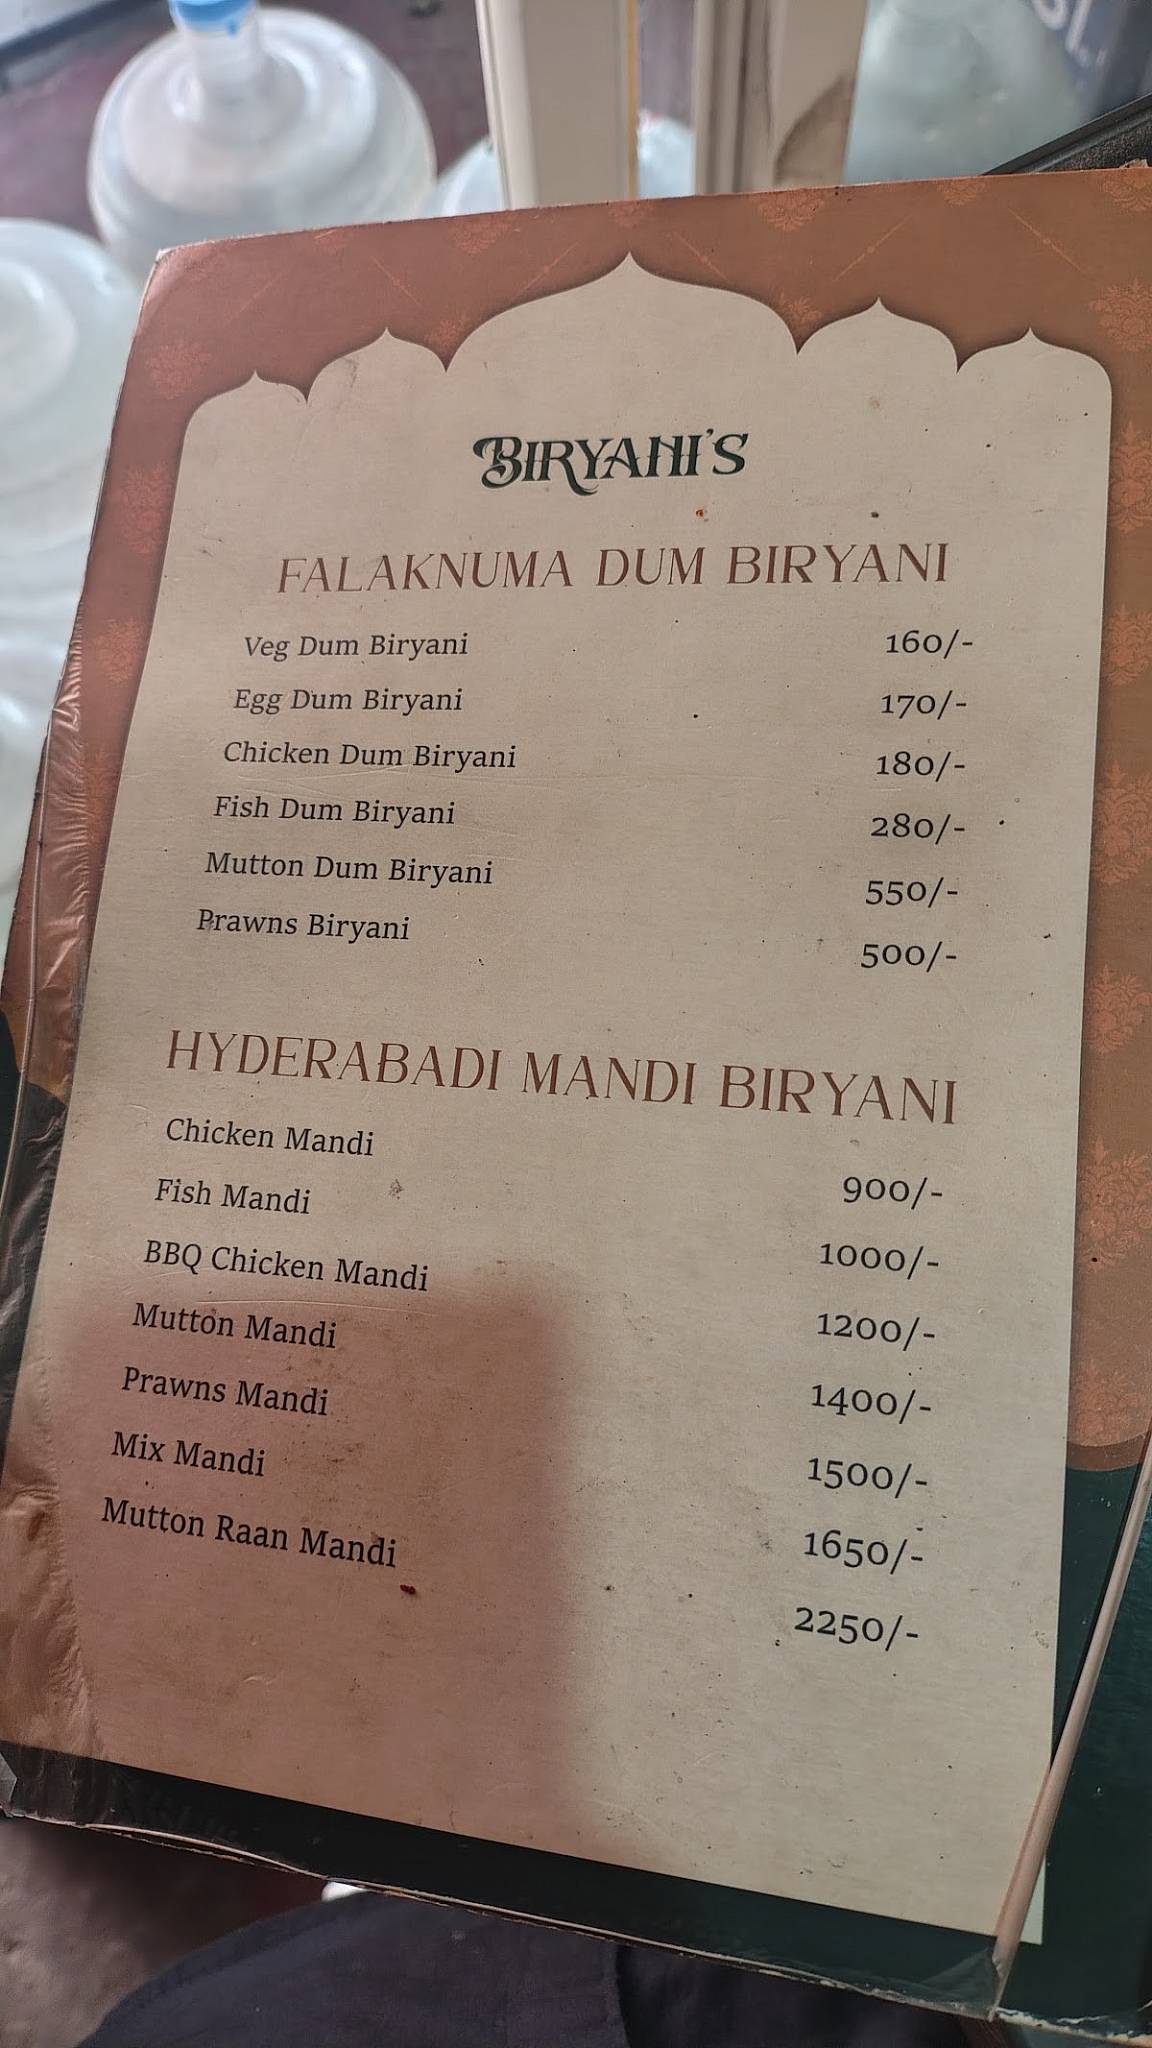 BIRYANI'S
FALAKNUMA DUM BIRYANI
Veg Dum Biryani 160/-
Egg Dum Biryani 170/-
Chicken Dum Biryani 180/-
Fish Dum Biryani 280/-
Mutton Dum Biryani 550/-
Prawns Biryani 500/-
HYDERABADI MANDI BIRYANI
Chicken Mandi 900/-
Fish Mandi 1000/-
BBQ Chicken Mandi 1200/-
Mutton Mandi 1400/-
Prawns Mandi 1500/-
Mix Mandi 1650/-
Mutton Raan Mandi 2250/-